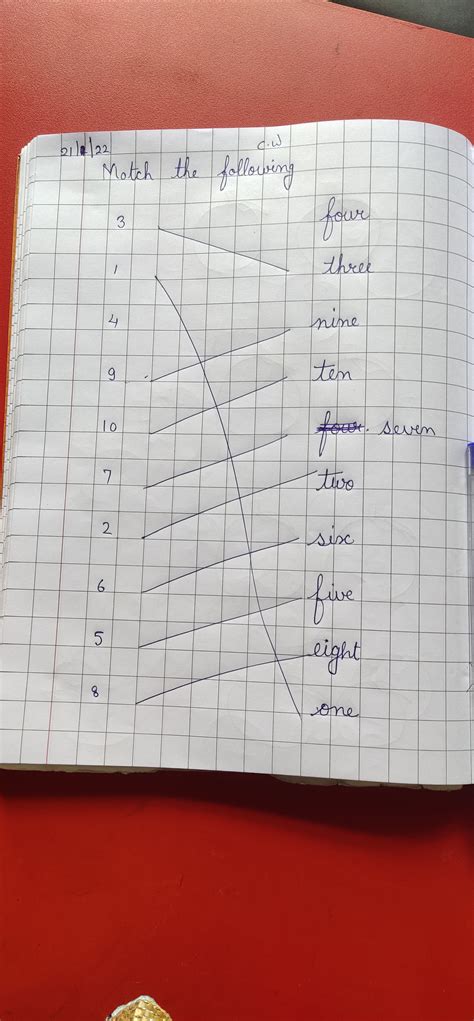 21/1/22 C.W
Match the following
3 four
1 three
4 nine
9 ten
10 four. seven
7 two
2 six
6 five
5 eight
8 one